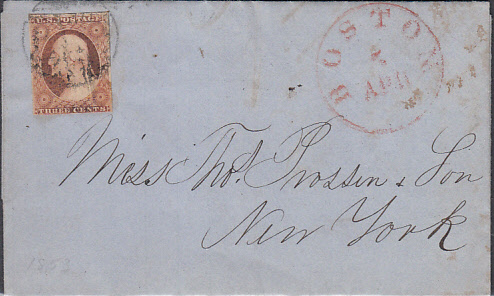 U.S. POSTAGE
THREE CENTS
BOSTON
APR
Miss Tho.s Prosser & Son
New York